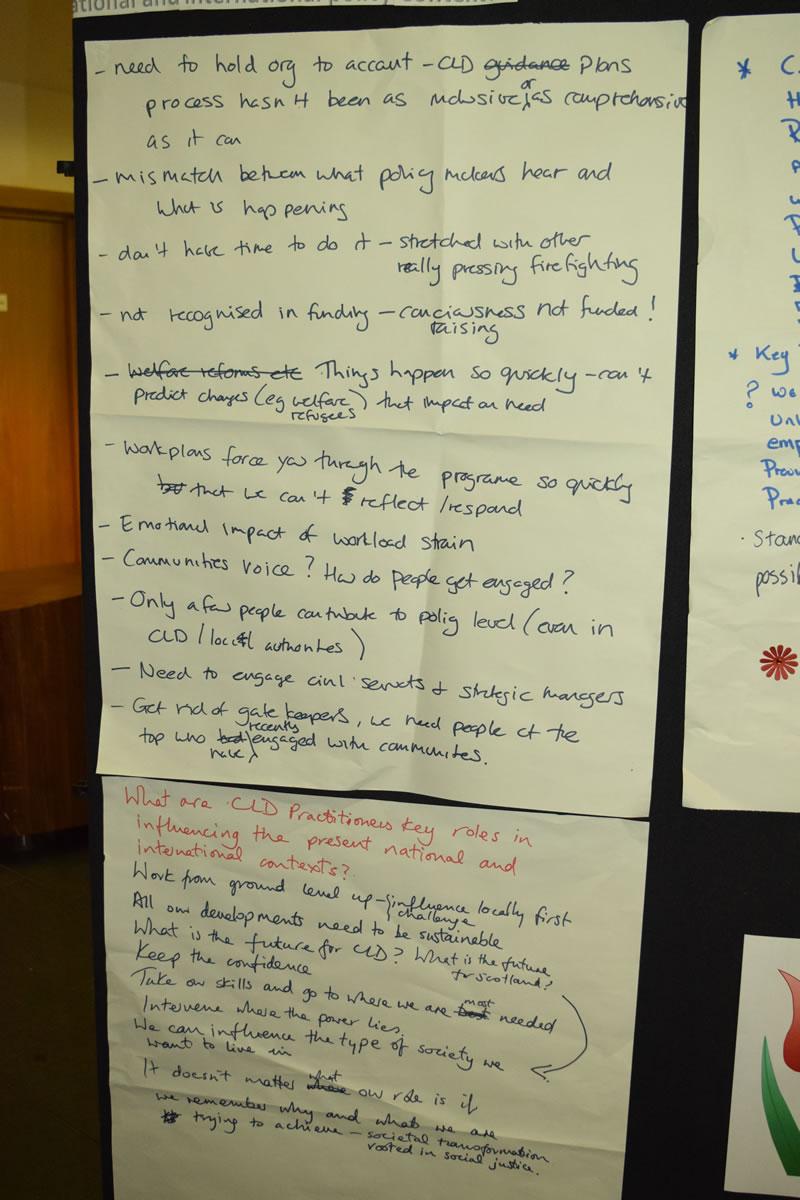 ational and international policy context.
- need to hold org to accaut - CLD guidance Plans
process hasn't been as inclusive or as comprehensive
as it can
- mismatch between what policy makers hear and
what is happening
- don't have time to do it - stretched with other
really pressing firefighting
- not recognised in funding - conciousness not funded!
raising
- Welfare reforms etc Things happen so quickly - can't
predict changes (eg welfare) that impact on need
refugees
- Workplans force you through the programe so quickly
but that we can't reflect / respond
- Emotional impact of workload strain
- Communities voice? How do people get engaged?
- Only a few people contribute to policy level (even in
CLD / local authorities)
- Need to engage civil servants & strategic managers
- Get rid of gate keepers, we need people at the
recently
top who had engaged with communites.
have
What are CLD Practitioners key roles in
influencing the present national and
international contexts?
Work from ground level up - influence locally first
challenge
All our developments need to be sustainable
What is the future for CLD? What is the future
for Scotland?
Keep the confidence
Take our skills and go to where we are best most needed
Intervene where the power lies.
We can influence the type of society we
want to live in
It doesn't matter where what our role is if
we remember why and what we are
trying to achieve - societal transformation
rooted in social justice.
* C.
H
* Key
? we
emp
Prac
· Stand
possib